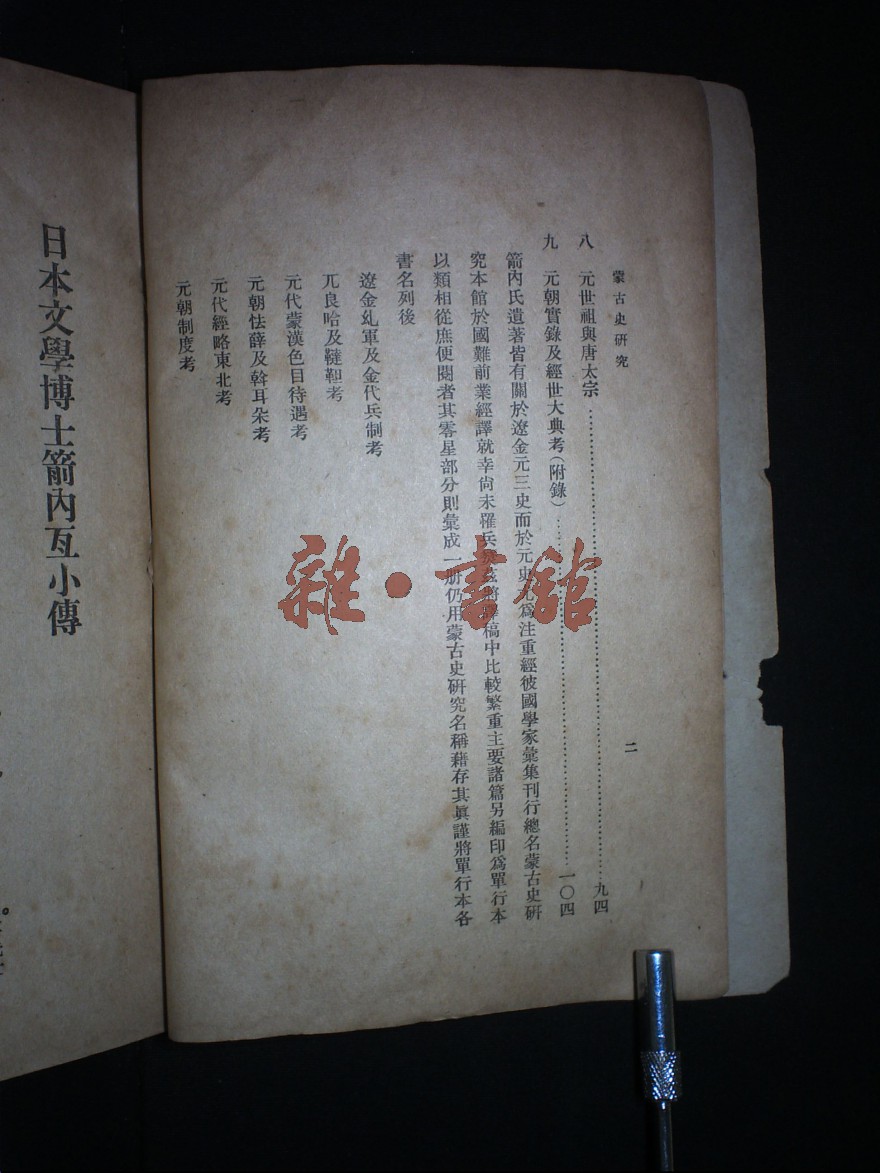 蒙古史研究
二
八　元世祖與唐太宗……九四
九　元朝實錄及經世大典考（附錄）……一〇四
箭內氏遺著皆有關於遼金元三史而於元史 爲注重經彼國學家彙集刊行總名蒙古史研
究本館於國難前業經譯就幸尙未罹兵 茲將譯稿中比較繁重主要諸篇另編印爲單行本
以類相從庶便閱者其零星部分則彙成一册仍用蒙古史研究名稱藉存其眞謹將單行本各
書名列後
遼金乣軍及金代兵制考
兀良哈及韃靼考
元代蒙漢色目待遇考
元朝怯薛及斡耳朵考
元代經略東北考
元朝制度考
日本文學博士箭內亙小傳
雜·書館